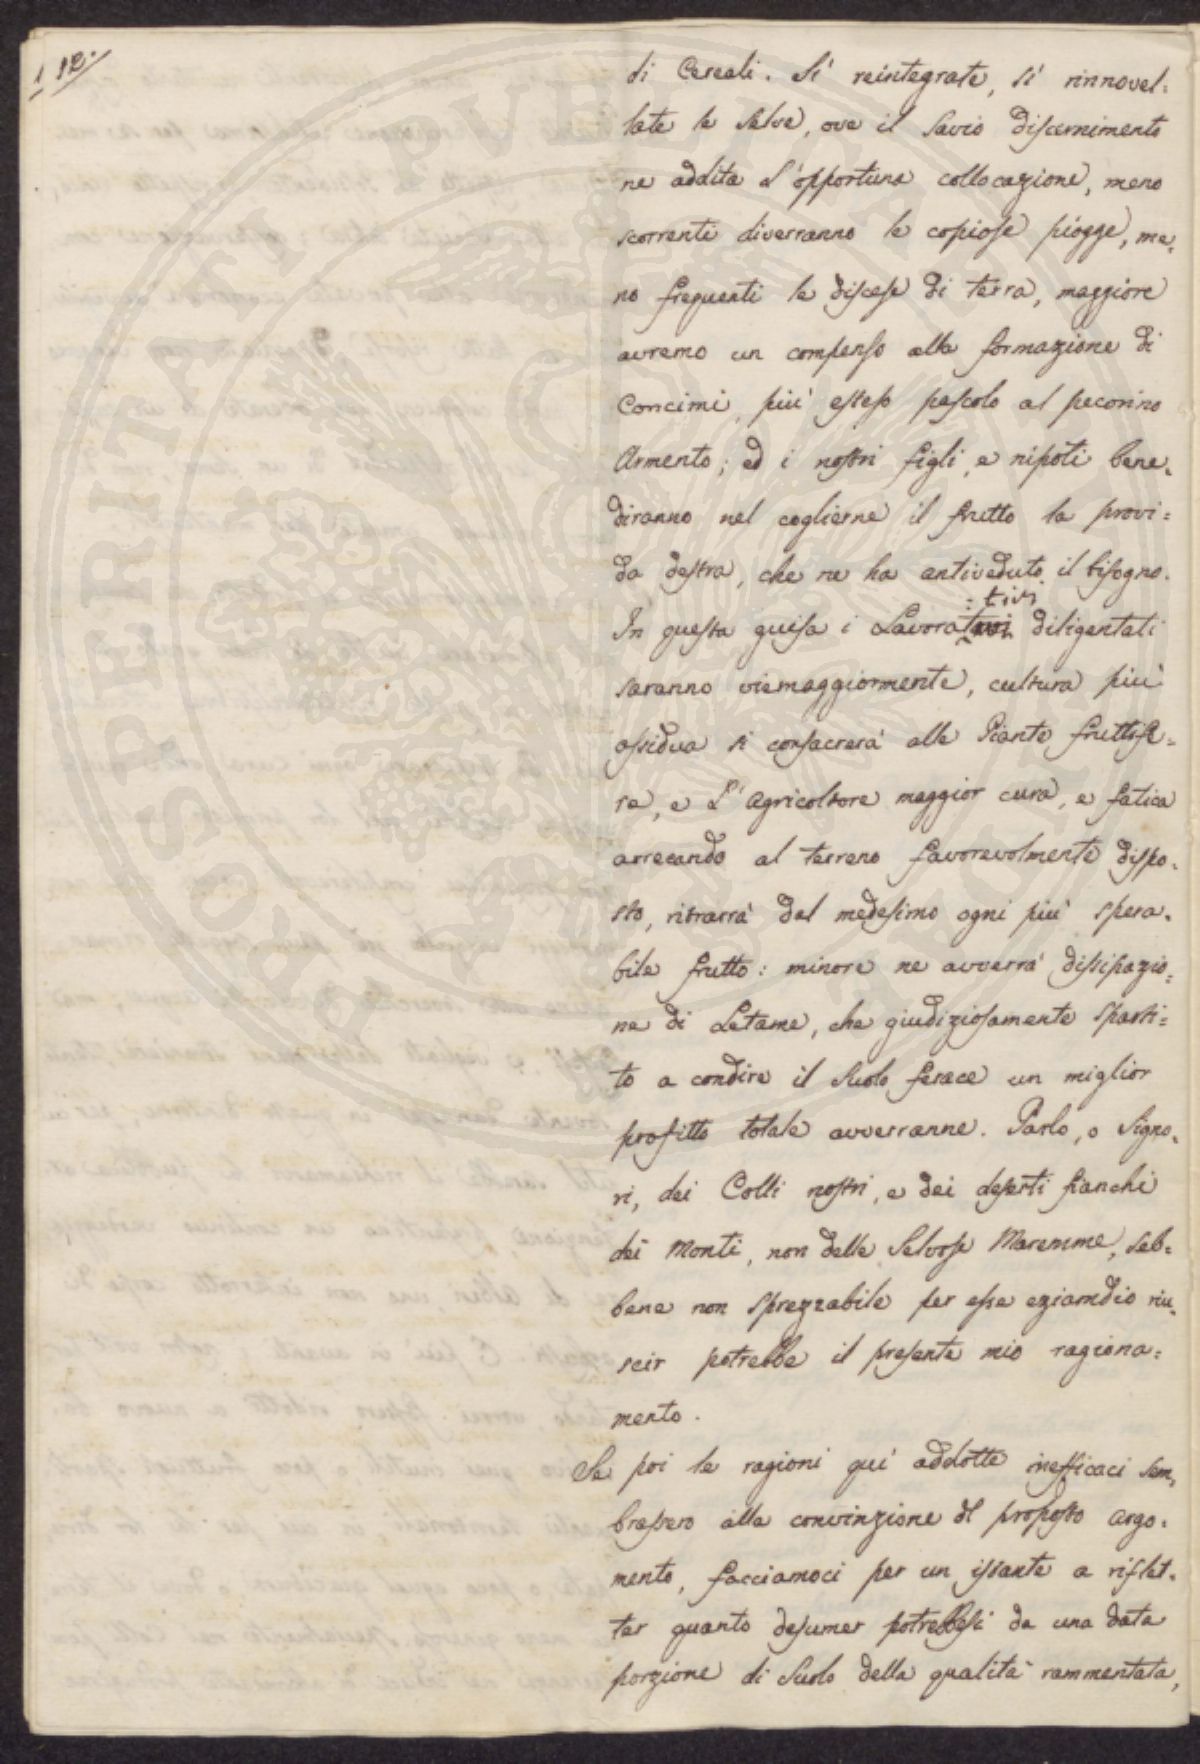 12.
di Cereali. Si reintegrate, si rinnovel=
late le Selve, ove il Savio discernimento
ne addita L'opportuna collocazione, meno
scorrenti diverranno le copiose piogge, me=
no frequenti le discese di terra, maggiore
avremo un compenso alla formazione di
Concimi, più esteso pascolo al pecorino
Armento; ed i nostri figli, e nipoti bene=
diranno nel coglierne il frutto la provi=
da destra, che ne ha antiveduto il bisogno.
=tivi
In questa guisa i Lavora diligentati
saranno viemaggiormente, cultura più
assidua si consacrerà alle Piante fruttife=
re, e L'Agricoltore maggior cura, e fatica
arrecando al terreno favorevolmente dispo=
sto, ritrarrà dal medesimo ogni più spera=
bile frutto: minore ne avverrà dissipazio=
ne di Letame, che giudiziosamente sparti=
to a condire il Suolo ferace un miglior
profitto totale avverranne. Parlo, o Signo=
ri, dei Colli nostri, e dei deserti fianchi
dei Monti, non delle Selvose Maremme, seb=
bene non sprezzabile per esse eziamdio riu=
scir potrebbe il presente mio ragiona=
mento.
Se poi le ragioni quì addotte inefficaci sem=
brassero alla convinzione del proposto argo=
mento, facciamoci per un istante a riflet=
ter quanto desumer potrebbesi da una data
porzione di Suolo della qualità rammentata,
PROSPERITATI PVBLICAE